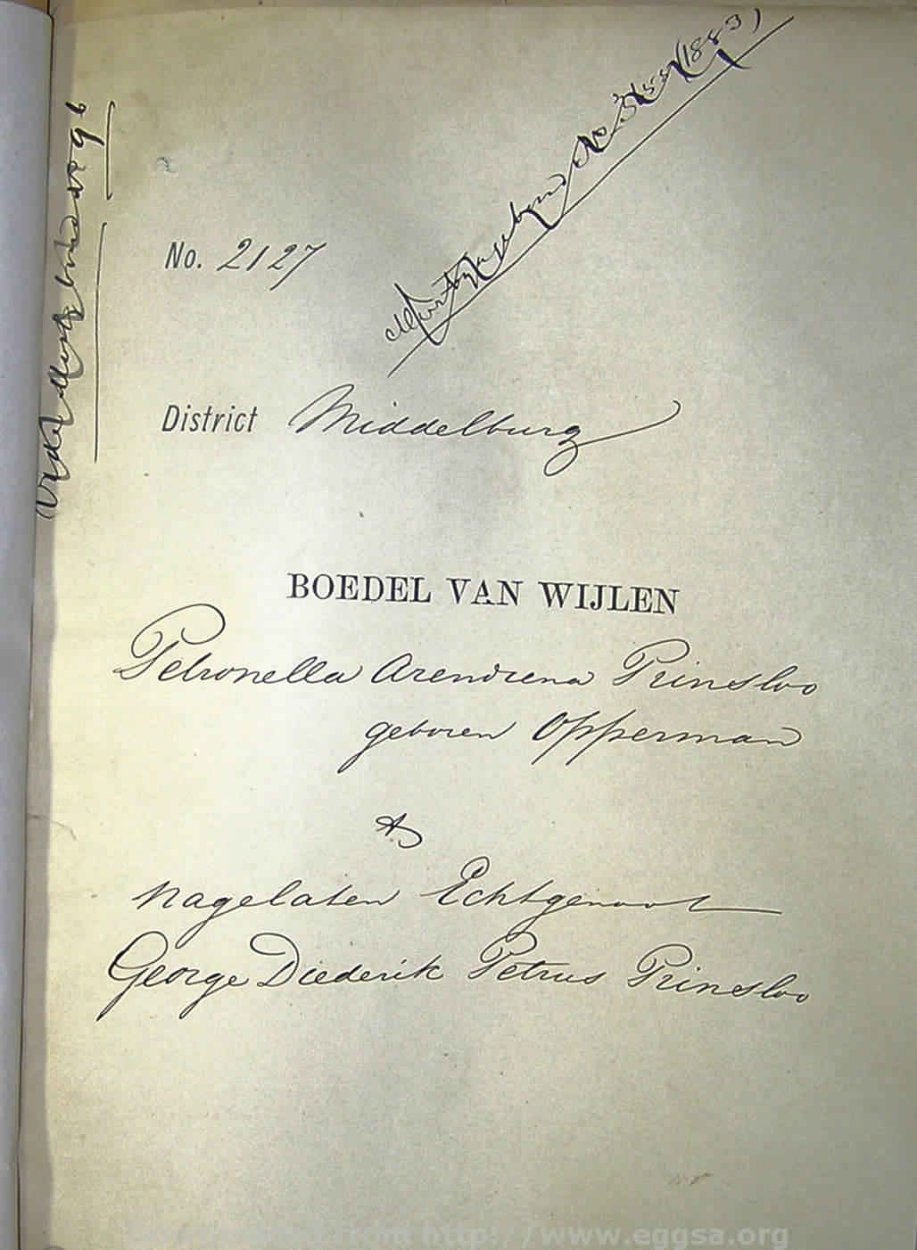 (1883)
No. 2127
District Middelburg
BOEDEL VAN WIJLEN
Petronella Arendiena Prinsloo
geboren Opperman
&
nagelaten Echtgenoot
George Diederik Petrus Prinsloo
from http://www.eggsa.org